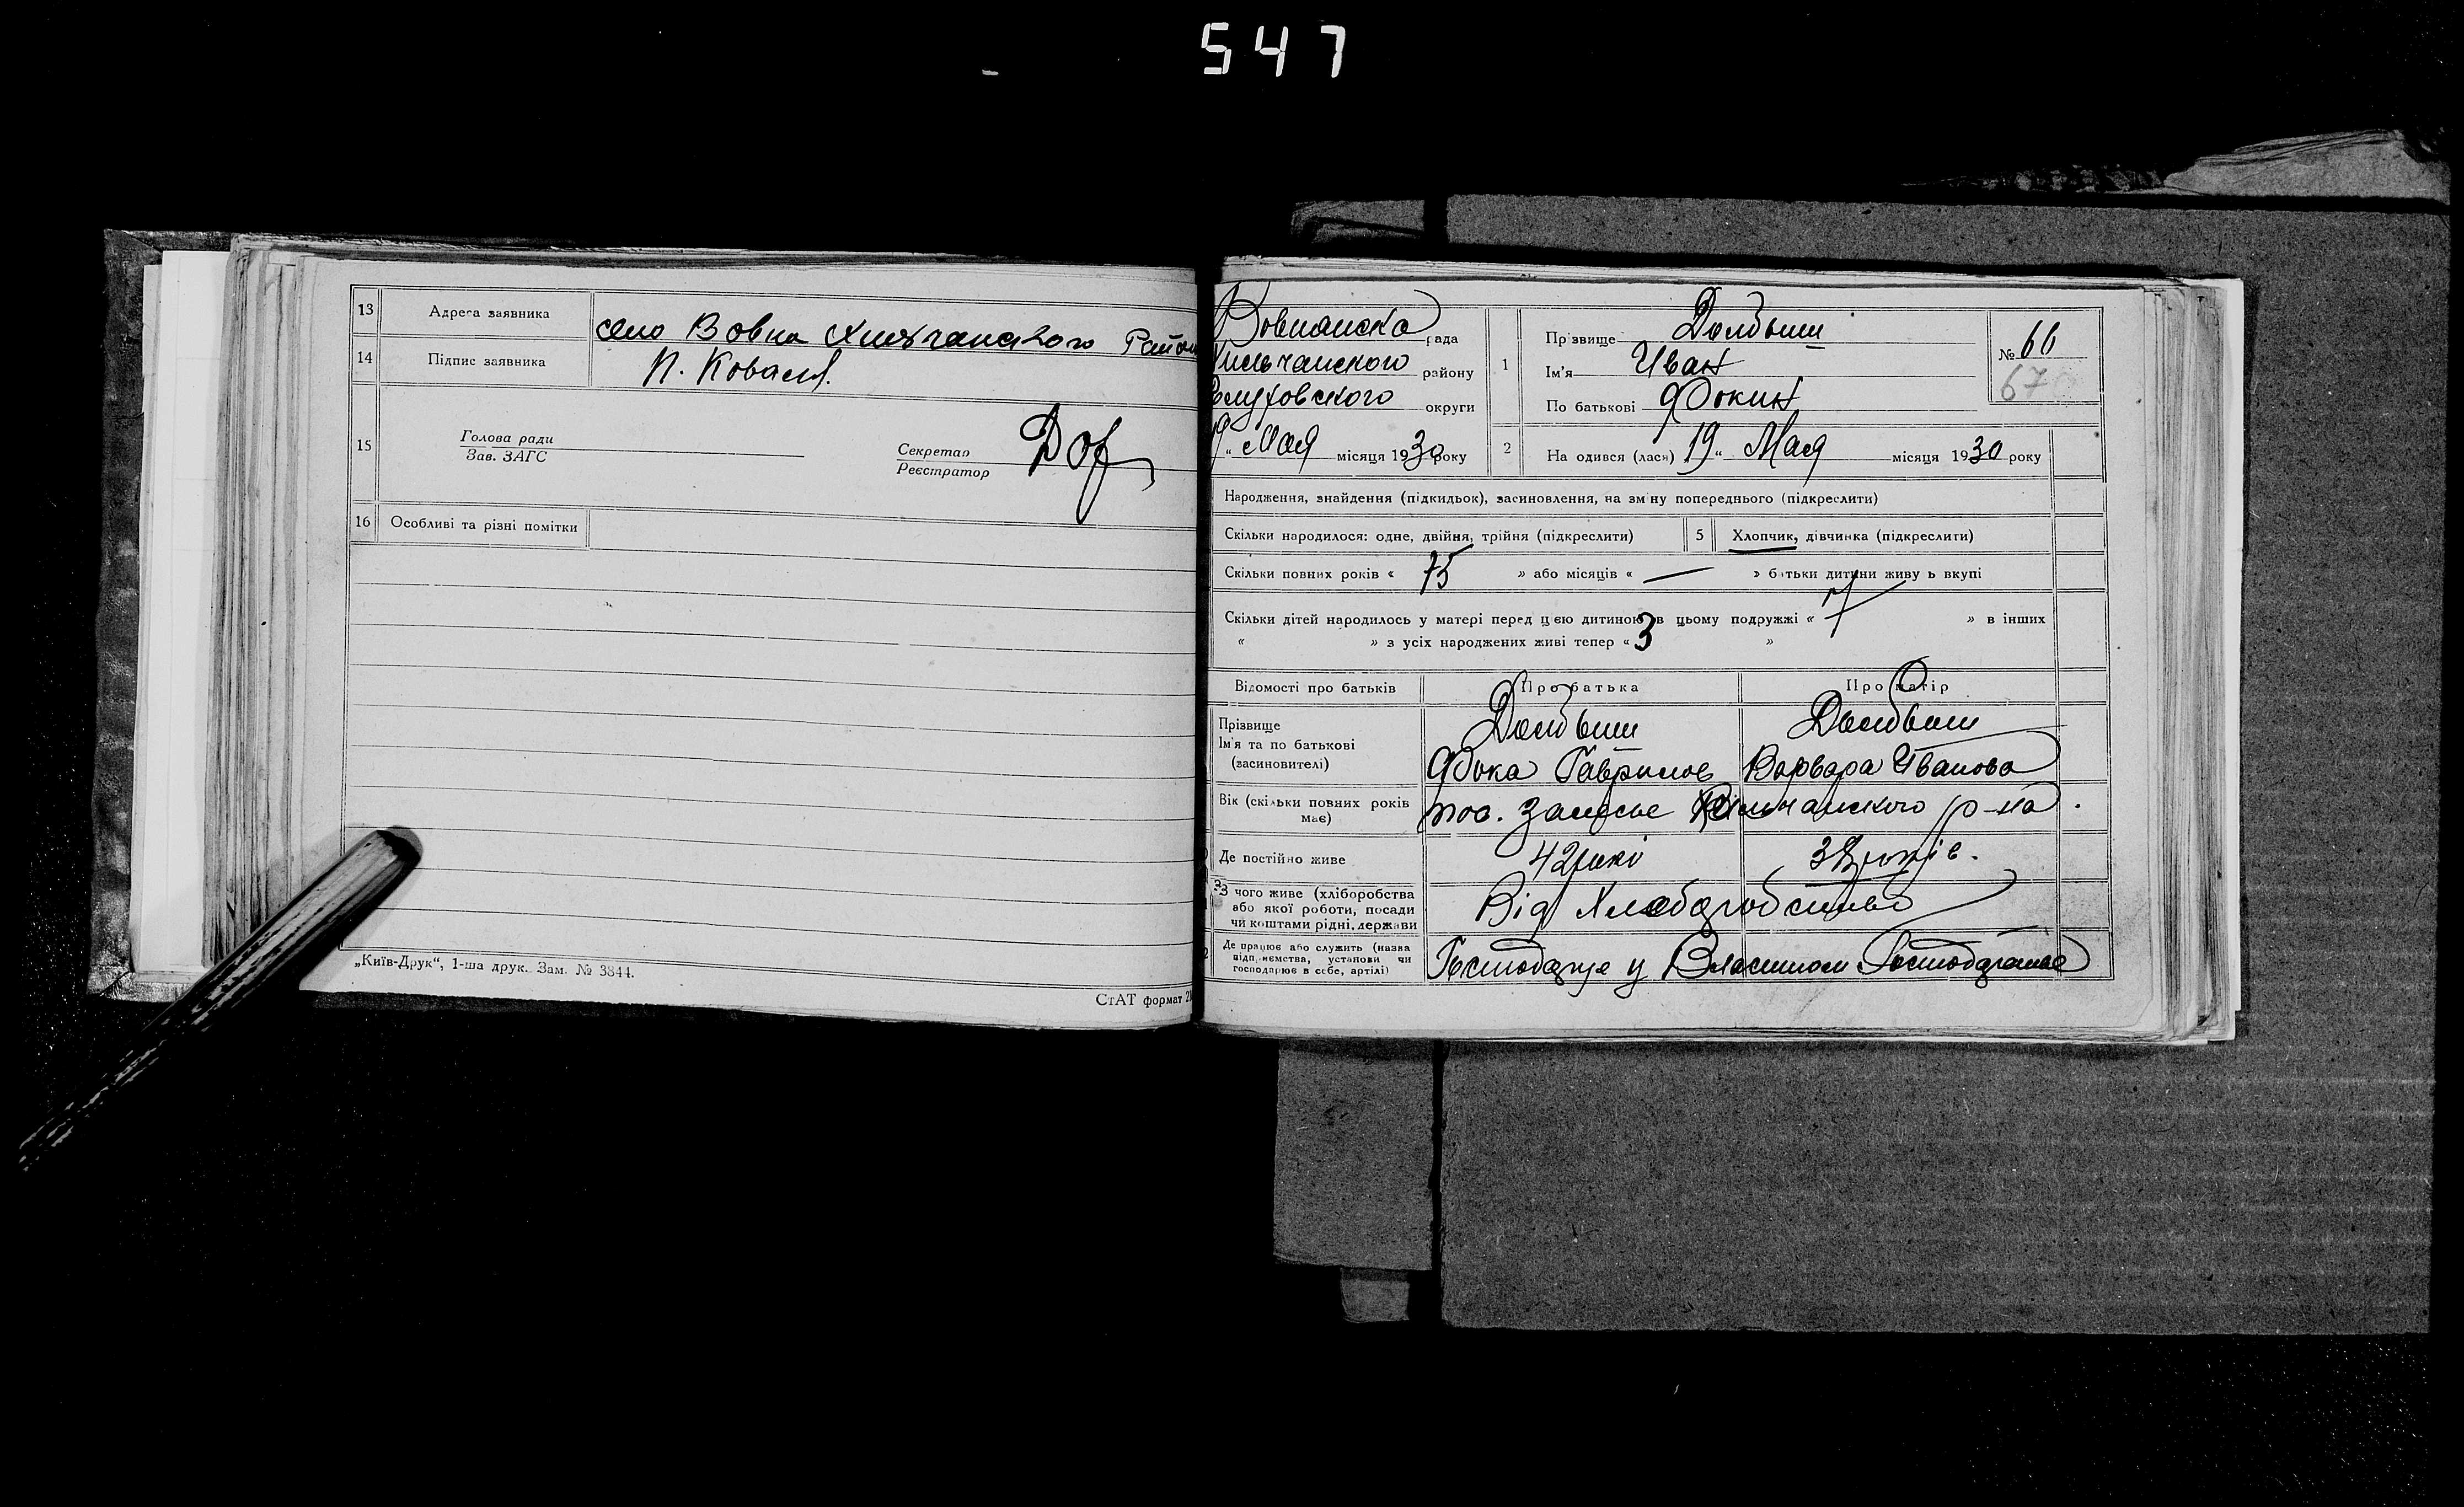 547
13 Адреса заявника село Вовна Хильчанского Район
14 Підпис заявника П. Коваль
15 Голова ради
Зав. ЗАГС
Секретар
Реєстратор
16 Особливі та різні помітки
„Київ-Друк“, 1-ша друк. Зам. № 3844.
СтАТ формат 2
Вовнянска рада
Хильчанского району
Глуховского округи
19 „ Мая місяця 1930 року
1 Прізвище Долбыш
Ім'я Иван
По батькові Фокин
№ 66
67
2 На одився (лася) 19 „ Мая місяця 1930 року
Народження, знайдення (підкидьок), засиновлення, на зміну попереднього (підкреслити)
Скільки народилося: одне, двійня, трійня (підкреслити) 5 Хлопчик, дівчинка (підкреслити)
Скільки повних років « 15 » або місяців « — » батьки дитини живуть вкупі
Скільки дітей народилось у матері перед цією дитиною в цьому подружжі « 7 » в інших
« » з усіх народжених живі тепер « 3 »
Відомості про батьків Про батька Про матір
Прізвище Долбыш Долбыш
Ім'я та по батькові
(засиновителі) Фока Гаврилов Варвара Иванова
Вік (скільки повних років
має) пос. Залесье Хильчанского р-на.
Де постійно живе 42 роки 38 років.
З чого живе (хліборобства
або якої роботи, посади
чи коштами рідні, держави Від Хлеборобства
Де працює або служить (назва
підприємства, установи чи
господарює в себе, артілі) Господарує у Власном Господарстве